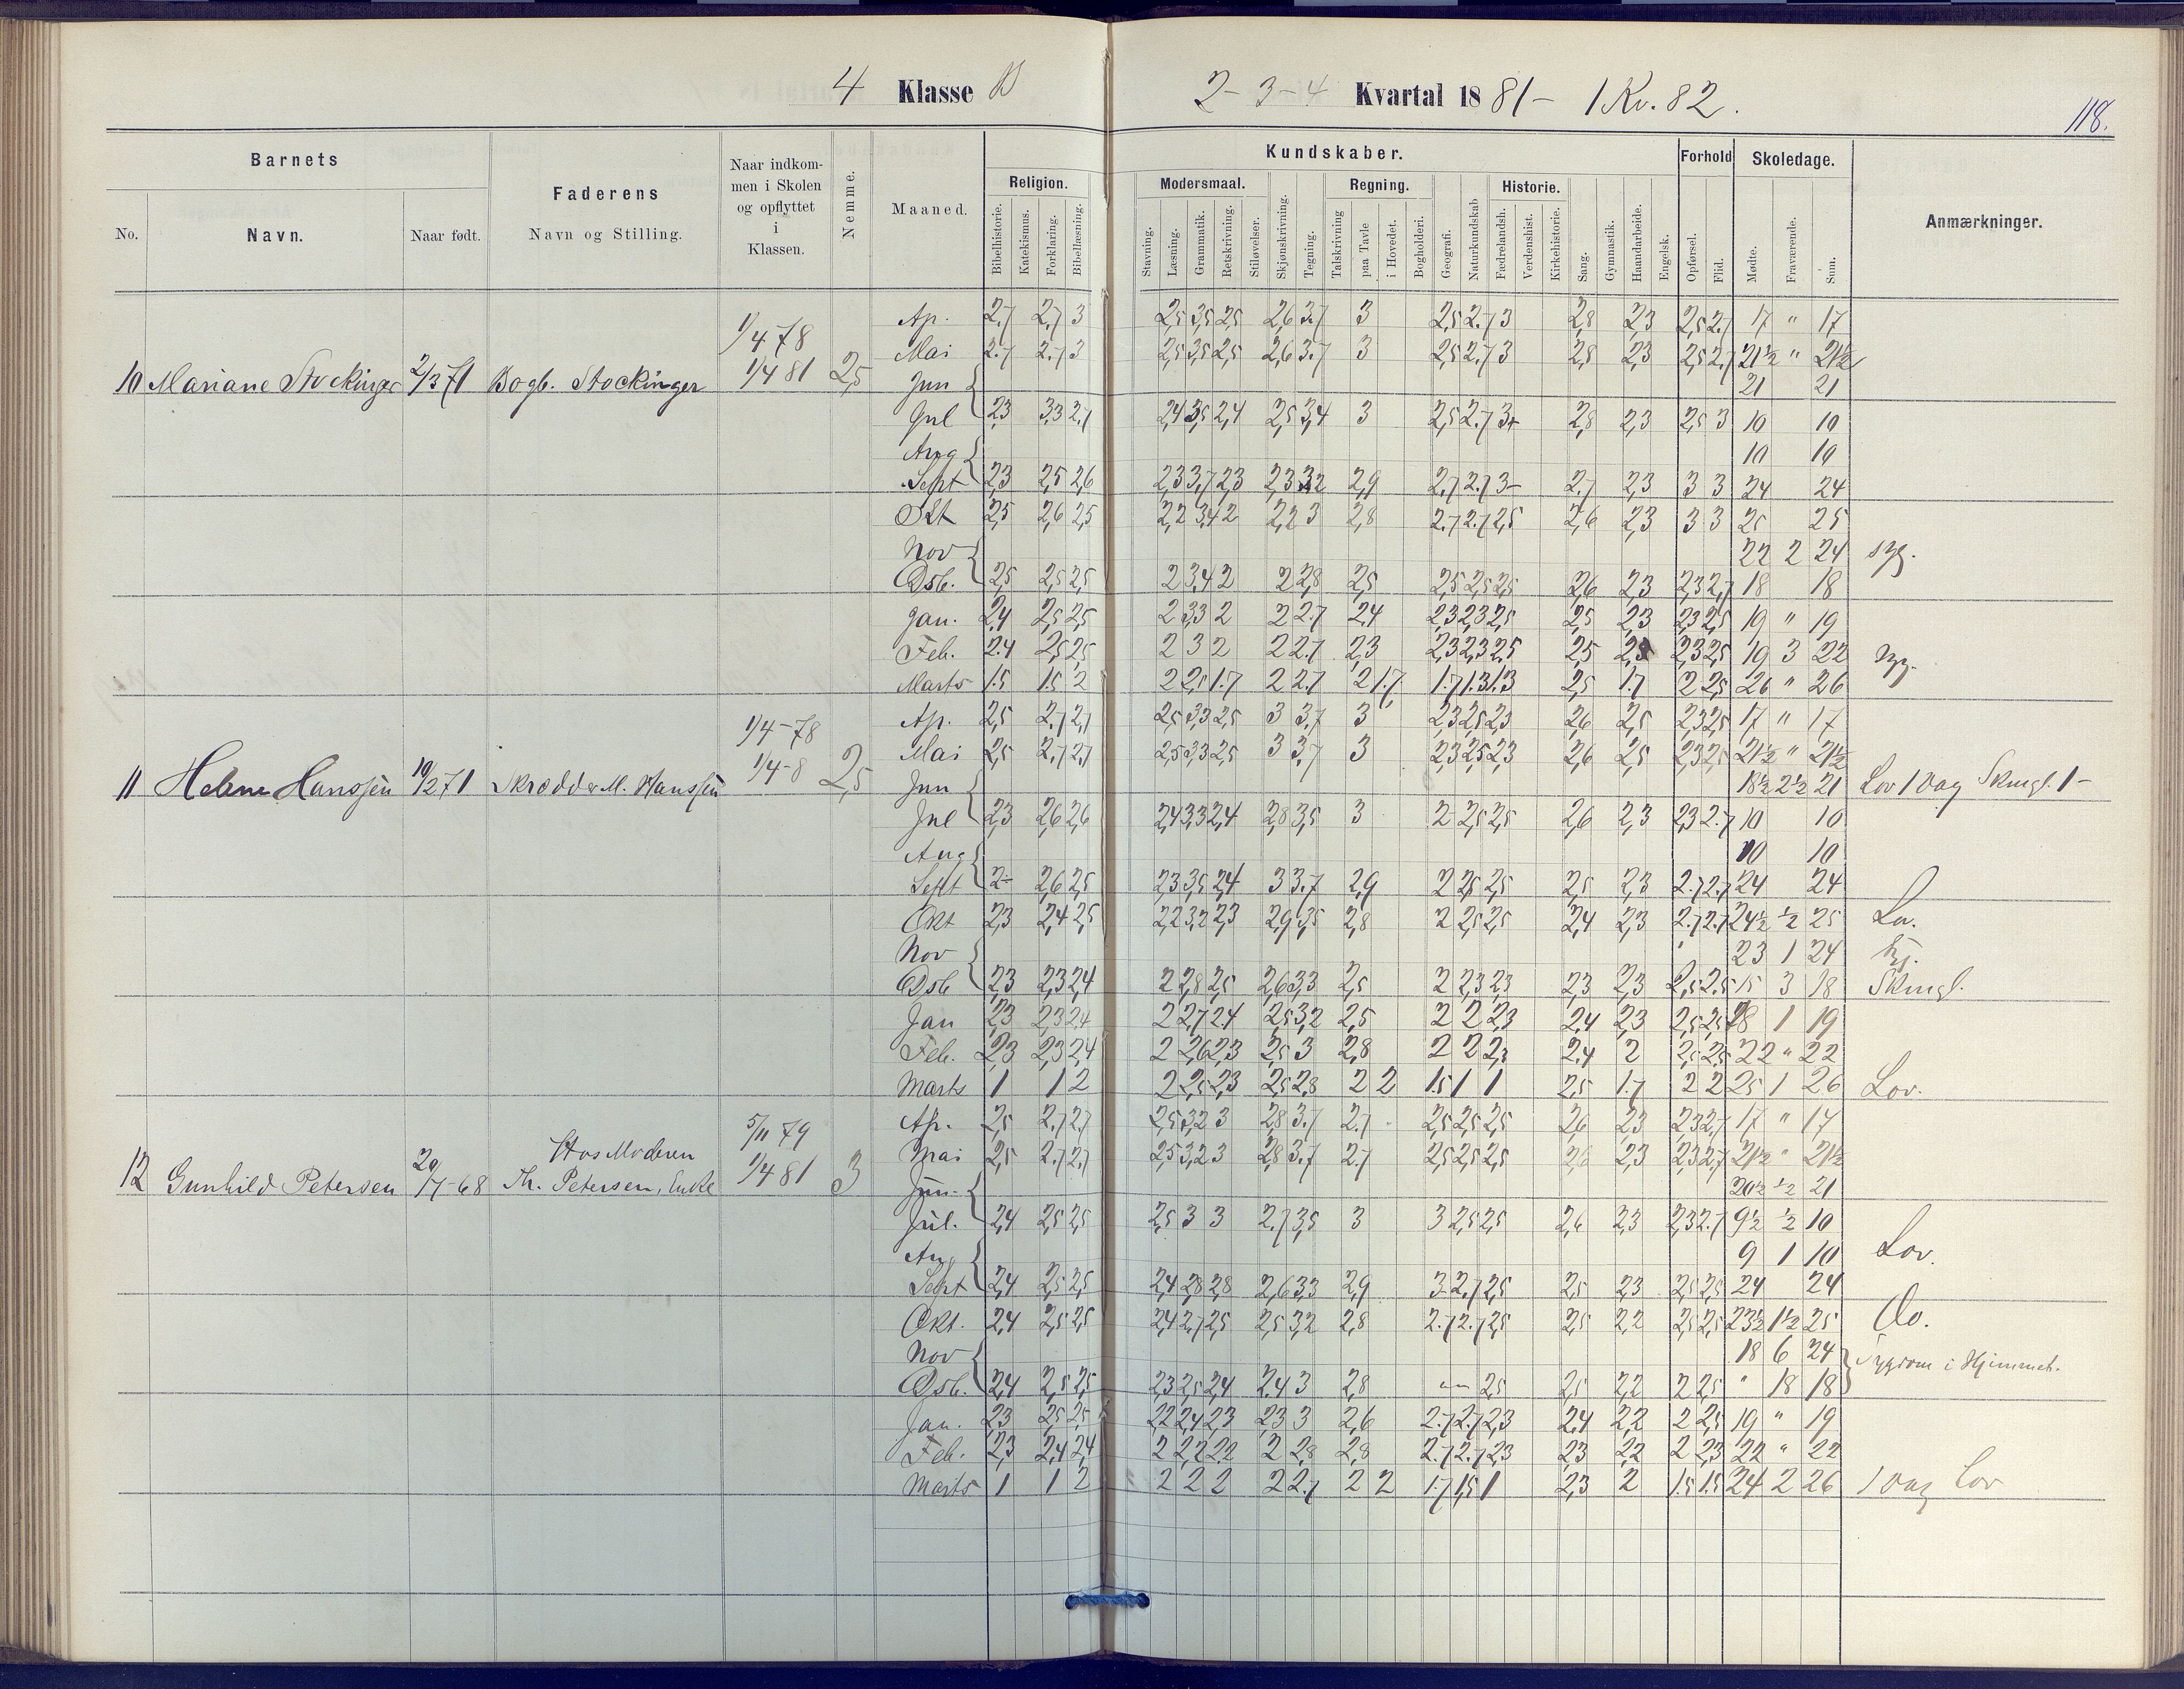 4 Klasse B
2-3-4 Kvartal 1881- 1 Kv. 82.
118.
Barnets
No.
Navn.
Naar født.
Faderens
Navn og Stilling.
Naar indkom-
men i Skolen
og opflyttet
i
Klassen.
Nemme.
Maaned.
Kundskaber.
Religion.
Bibelhistorie.
Katekismus.
Forklaring.
Bibellæsning.
Modersmaal.
Stavning.
Læsning.
Grammatik.
Retskrivning.
Stiløvelser.
Skjønskrivning.
Tegning.
Regning.
Talskrivning
paa Tavle
i Hovedet.
Bogholderi.
Geografi.
Naturkundskab
Historie.
Fædrelandsh.
Verdenshist.
Kirkehistorie.
Sang.
Gymnastik.
Haandarbeide.
Engelsk.
Forhold
Opførsel.
Flid.
Skoledage.
Mødte.
Fraværende.
Sum.
Anmærkninger.
10 Mariane Stockinger 2/3 71 Bogb. Stockinger 1/4 78 1/4 81 2,5
Ap. 2,7 2,7 3 2,5 3,5 2,5 2,6 3,7 3 2,5 2,7 3 2,8 2,3 2,5 2,7 17 " 17
Mai 2,7 2,7 3 2,5 3,5 2,5 2,6 3,7 3 2,5 2,7 3 2,8 2,3 2,5 2,7 21½ " 21½
Jun 21 21
Jul 2,3 3,3 2,7 2,4 3,5 2,4 2,5 3,4 3 2,5 2,7 3+ 2,8 2,3 2,5 3 10 10
Aug 10 10
Sept 2,3 2,5 2,6 2,3 3,7 2,3 2,3 3,2 2,9 2,7 2,7 3- 2,7 2,3 3 3 24 24
Okt 2,5 2,6 2,5 2,2 3,4 2 2,2 3 2,8 2,7 2,7 2,5 2,6 2,3 3 3 25 25
Nov 22 2 24 syg.
Dsb. 2,5 2,5 2,5 2 3,4 2 2 2,8 2,5 2,5 2,5 2,5 2,6 2,3 2,3 2,7 18 18
Jan. 2,4 2,5 2,5 2 3,3 2 2 2,7 2,4 2,3 2,3 2,5 2,5 2,3 2,3 2,5 19 " 19
Feb. 2,4 2,5 2,5 2 3 2 2 2,7 2,3 2,3 2,3 2,5 2,5 2,3 2,5 19 3 22 syg.
Marts 1,5 1,5 2 2 2,5 1,7 2 2,7 2 1,7 1,7 1,3 1,3 2,5 1,7 2 2,5 26 " 26
11 Helene Hanssen 10/2 71 Skrædder M. Hanssen 1/4-78 1/4-8 2,5
Ap. 2,5 2,7 2,7 2,5 3,3 2,5 3 3,7 3 2,3 2,5 2,3 2,6 2,5 2,3 2,5 17 " 17
Mai 2,5 2,7 2,7 2,5 3,3 2,5 3 3,7 3 2,3 2,5 2,3 2,6 2,5 2,3 2,5 21½ " 21½
Jun 18½ 2½ 21 Lov 1 Dag Skmgl. 1-
Jul 2,3 2,6 2,6 2,4 3,3 2,4 2,8 3,5 3 2 2,5 2,5 2,6 2,3 2,3 2,7 10 10
Aug 10 10
Sept 2- 2,6 2,5 2,3 3,5 2,4 3 3,7 2,9 2 2,5 2,5 2,5 2,3 2,7 2,7 24 24
Okt 2,3 2,4 2,5 2,2 3,2 2,3 2,9 3,5 2,8 2 2,5 2,5 2,4 2,3 2,7 2,7 24½ ½ 25
Nov 23 1 24
Dsb 2,3 2,3 2,4 2 2,8 2,5 2,6 3,3 2,5 2 2,3 2,3 2,3 2,3 2,5 2,5 15 3 18 Skmgl.
Jan 2,3 2,3 2,4 2 2,7 2,4 2,5 3,2 2,5 2 2 2,3 2,4 2,3 2,5 2,5 18 1 19
Feb. 2,3 2,3 2,4 2 2,6 2,3 2,5 3 2,8 2 2 2,3 2,4 2 2,5 2,5 22 " 22
Marts 1 1 2 2 2,5 2,3 2,5 2,8 2 2 1,5 1 1 2,5 1,7 2 2 25 1 26 Lov.
12 Gunhild Petersen 20/7-68 Hos Moderen Th. Petersen, Enke 5/11 79 1/4 81 3
Ap. 2,5 2,7 2,7 2,5 3,2 3 2,8 3,7 2,7 2,5 2,5 2,5 2,6 2,3 2,3 2,7 17 " 17
Mai 2,5 2,7 2,7 2,5 3,2 3 2,8 3,7 2,7 2,5 2,5 2,5 2,6 2,3 2,3 2,7 21½ " 21½
Jun. 20½ ½ 21
Jul. 2,4 2,5 2,5 2,5 3 3 2,7 3,5 3 3 2,5 2,5 2,6 2,3 2,3 2,7 9½ ½ 10
Aug 9 1 10 Lov.
Sept 2,4 2,5 2,5 2,4 2,8 2,8 2,6 3,3 2,9 3 2,7 2,5 2,5 2,3 2,5 2,5 24 24
Okt. 2,4 2,5 2,5 2,4 2,7 2,5 2,5 3,2 2,8 2,7 2,7 2,5 2,5 2,2 2,5 2,5 23½ 1½ 25 Do.
Nov 18 6 24 Sygdom i Hjemmet.
Dsb. 2,4 2,5 2,5 2,3 2,5 2,4 2,4 3 2,8 2,5 2,5 2,2 2 2,5 " 18 18
Jan. 2,3 2,5 2,5 2,2 2,4 2,3 2,3 3 2,6 2,7 2,7 2,3 2,4 2,2 2 2,5 19 " 19
Feb. 2,3 2,4 2,4 2 2,2 2,2 2 2,8 2,8 2,7 2,7 2,3 2,3 2,2 2 2,3 22 " 22
Marts 1 1 2 2 2 2 2 2,7 2 2 1,7 1,5 1 2,3 2 1,5 1,5 24 2 26 1 Dag Lov